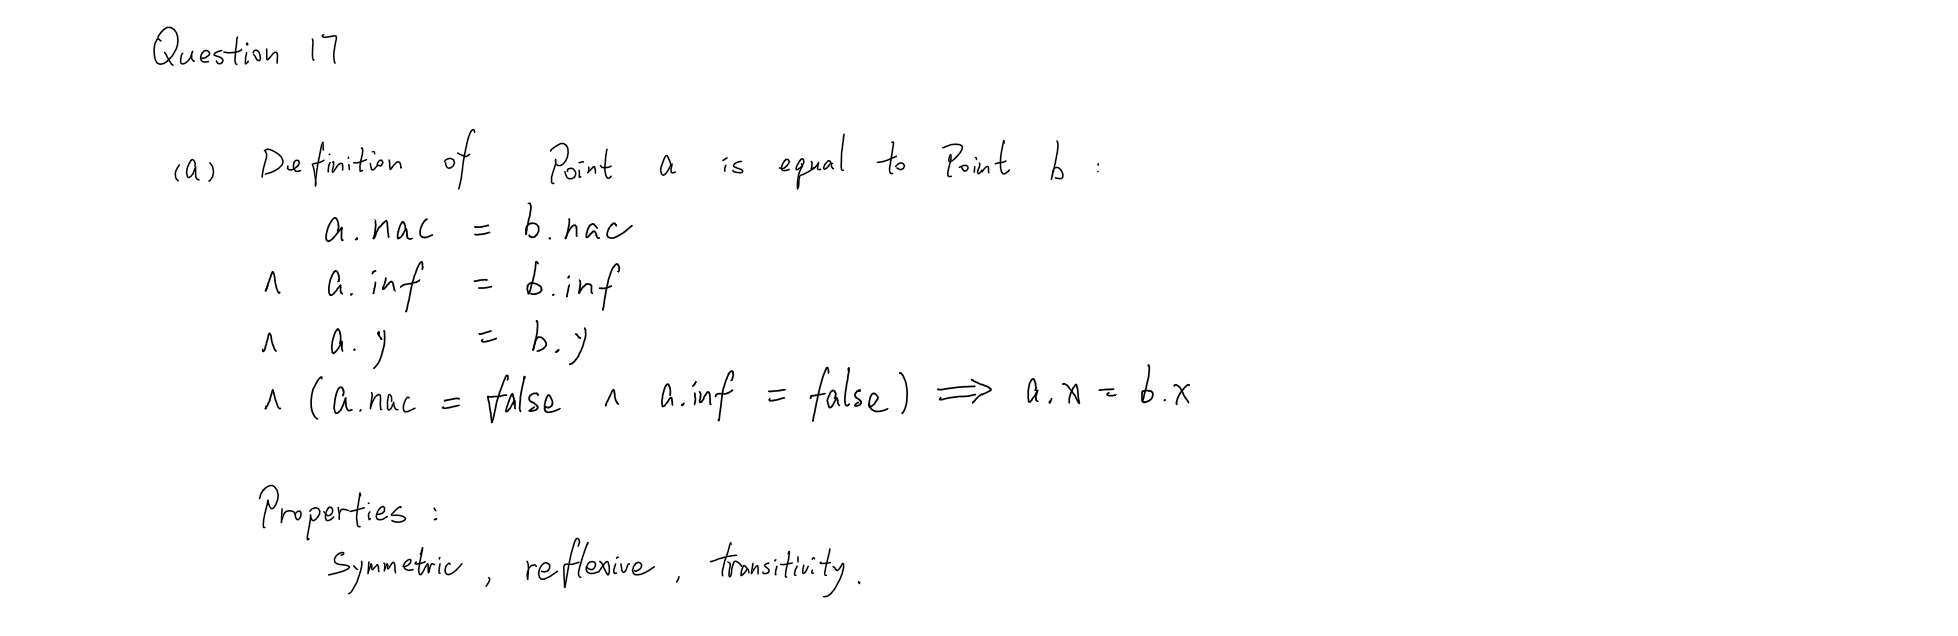 Question 17
(a) Definition of Point a is equal to Point b :
a.nac = b.nac
∧ a.inf = b.inf
∧ a.y = b.y
∧ (a.nac = false ∧ a.inf = false) ⟹ a.x = b.x
Properties :
Symmetric , reflexive , transitivity.